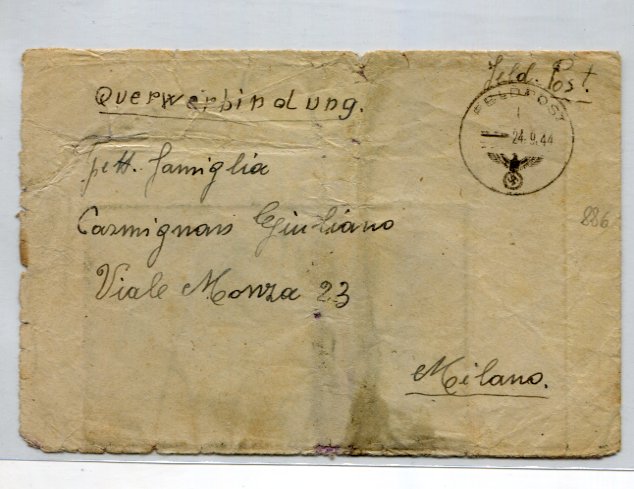 Feld. Post.
Querverbindung.
FELDPOST
24.9.44
pett. famiglia
Carmignani Giuliano
286
Viale Monza 23
Milano.